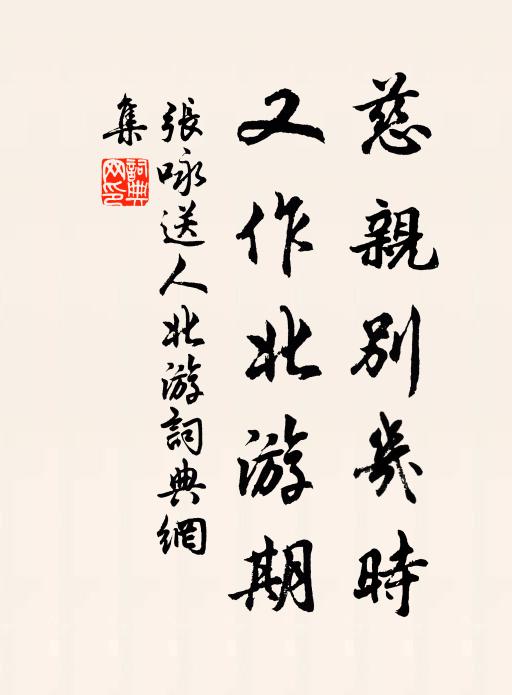 慈親別幾時
又作北游期
張咏送人北游詞典網
集
詞典
网印